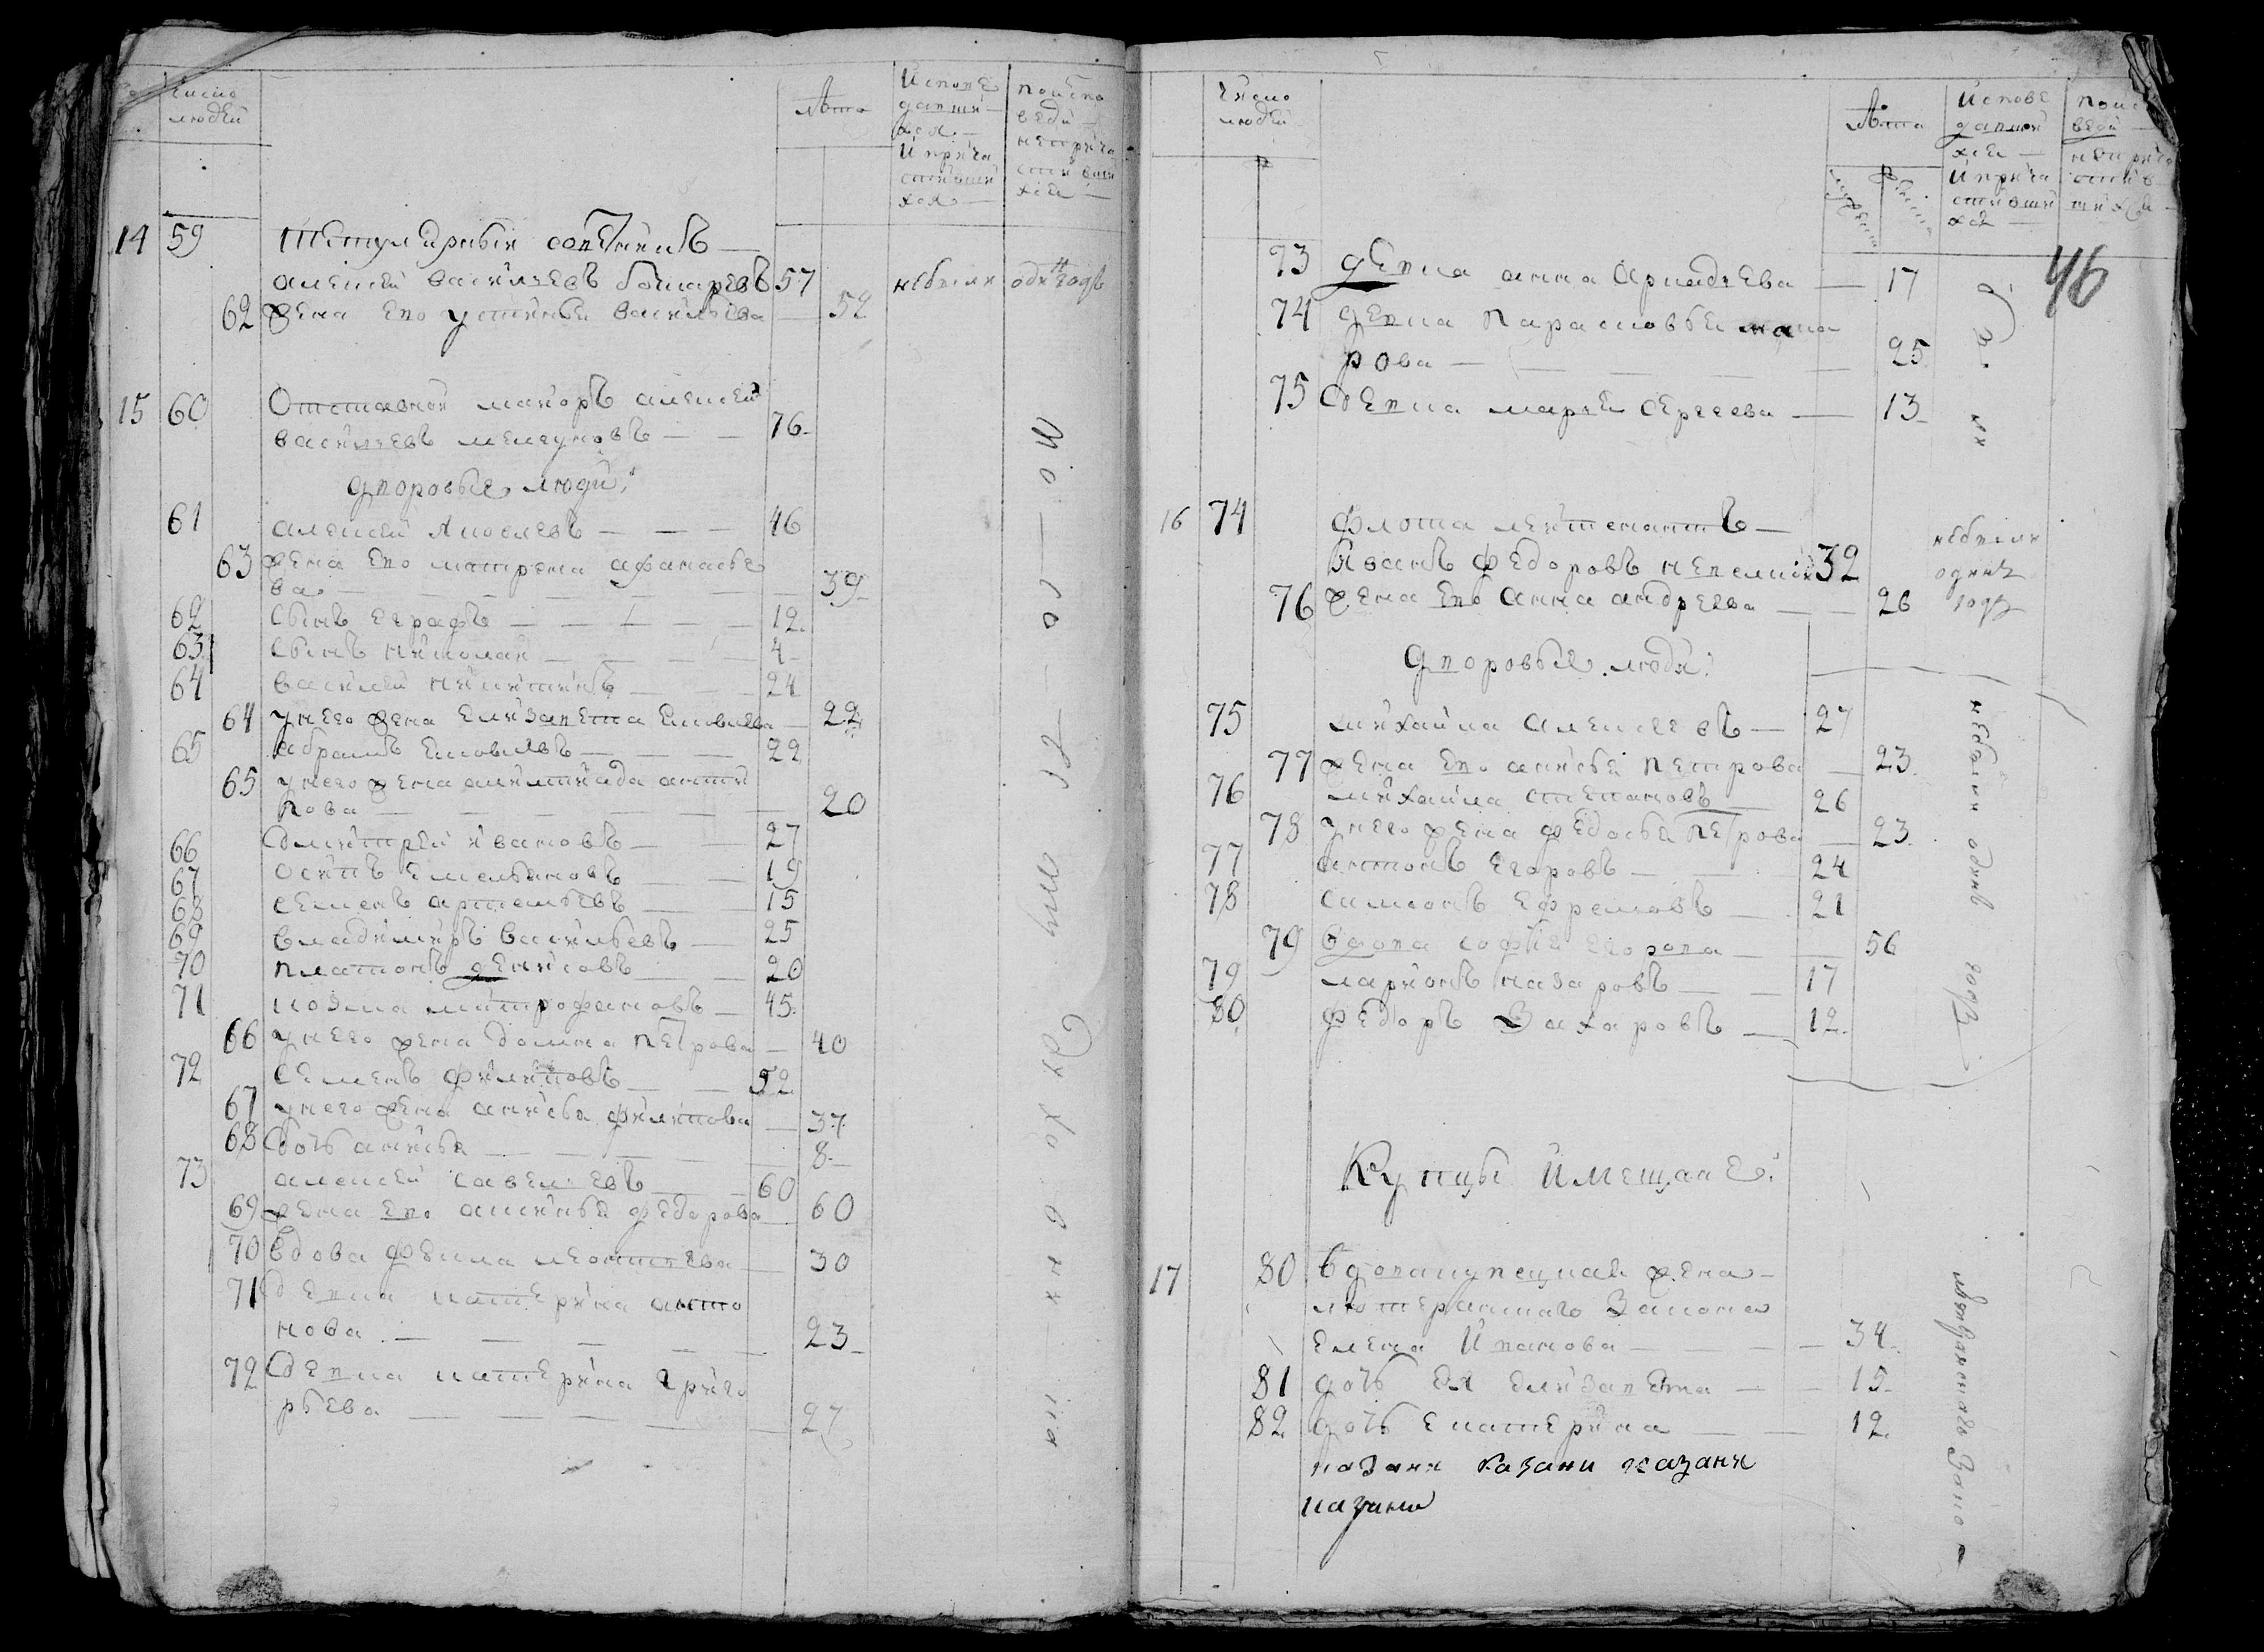 число
людей
лѣта
Испове
давши
хся
И прича
стивши
хся
поиспо
веди
неприча
стивши
хся
14 59 титулярный советникъ
алексей васильевъ 57 небыли одинъ годъ
62 жена ево устинья васильева 52
15 60 Отставной маиоръ алексей
васильевъ мелгуновъ 76
дворовые люди:
61 алексей яковлевъ 46
63 жена ево матрена афанасье
ва 39
62 сынъ еграфъ 12
63 сынъ николай 4
64 василей никитинъ 24
64 у него жена елизавета
65 абрамъ 22
65 у него жена анти
пова 20
66 дмитрей ивановъ 27
67 осипъ емельяновъ 19
68 семенъ артемьевъ 15
69 владимиръ васильевъ 25
70 платонъ денисовъ 20
71 козма митрофановъ 45
66 у него жена домна петрова 40
72 семенъ филиповъ 52
67 у него жена анисья филипова 37
68 дочь анисья 8
73 алексей савельевъ 60
69 жена ево акинья федорова 60
70 вдова фекла леонтьева 30
71 девка катерина анто
нова 23
72 девка катерина григо
рьева 27
число
людей
лѣта
Испове
давши
хся
И прича
стивши
хся
веди
неприча
стив
шихся
46
73 девка анна аркадьева 17
74 девка парасковья мака
рова 25
75 девка марья сергеева 13
16 74 флота лейтенантъ
Иванъ федоровъ 32 небыли
одинъ
76 жена ево анна андреева 26 годъ
дворовые люди:
75 михаила алексеевъ 27
77 жена ево анисья петрова 23
76 михаила степановъ 26
78 у него жена федосья петрова 23
77 антонъ егоровъ 24
78 самсонъ ефремовъ 21
79 вдова софья егорова 56
79 ларионъ назаровъ 17
80 федоръ Захаровъ 12
небыли одинъ годъ
Купцы И мещане:
17 80 вдова купецкая жена
лютеранскаго Закона
елена Иванова 34
81 дочь ея елизавета 15
82 дочь екатерина 12
казани казани казани
казани